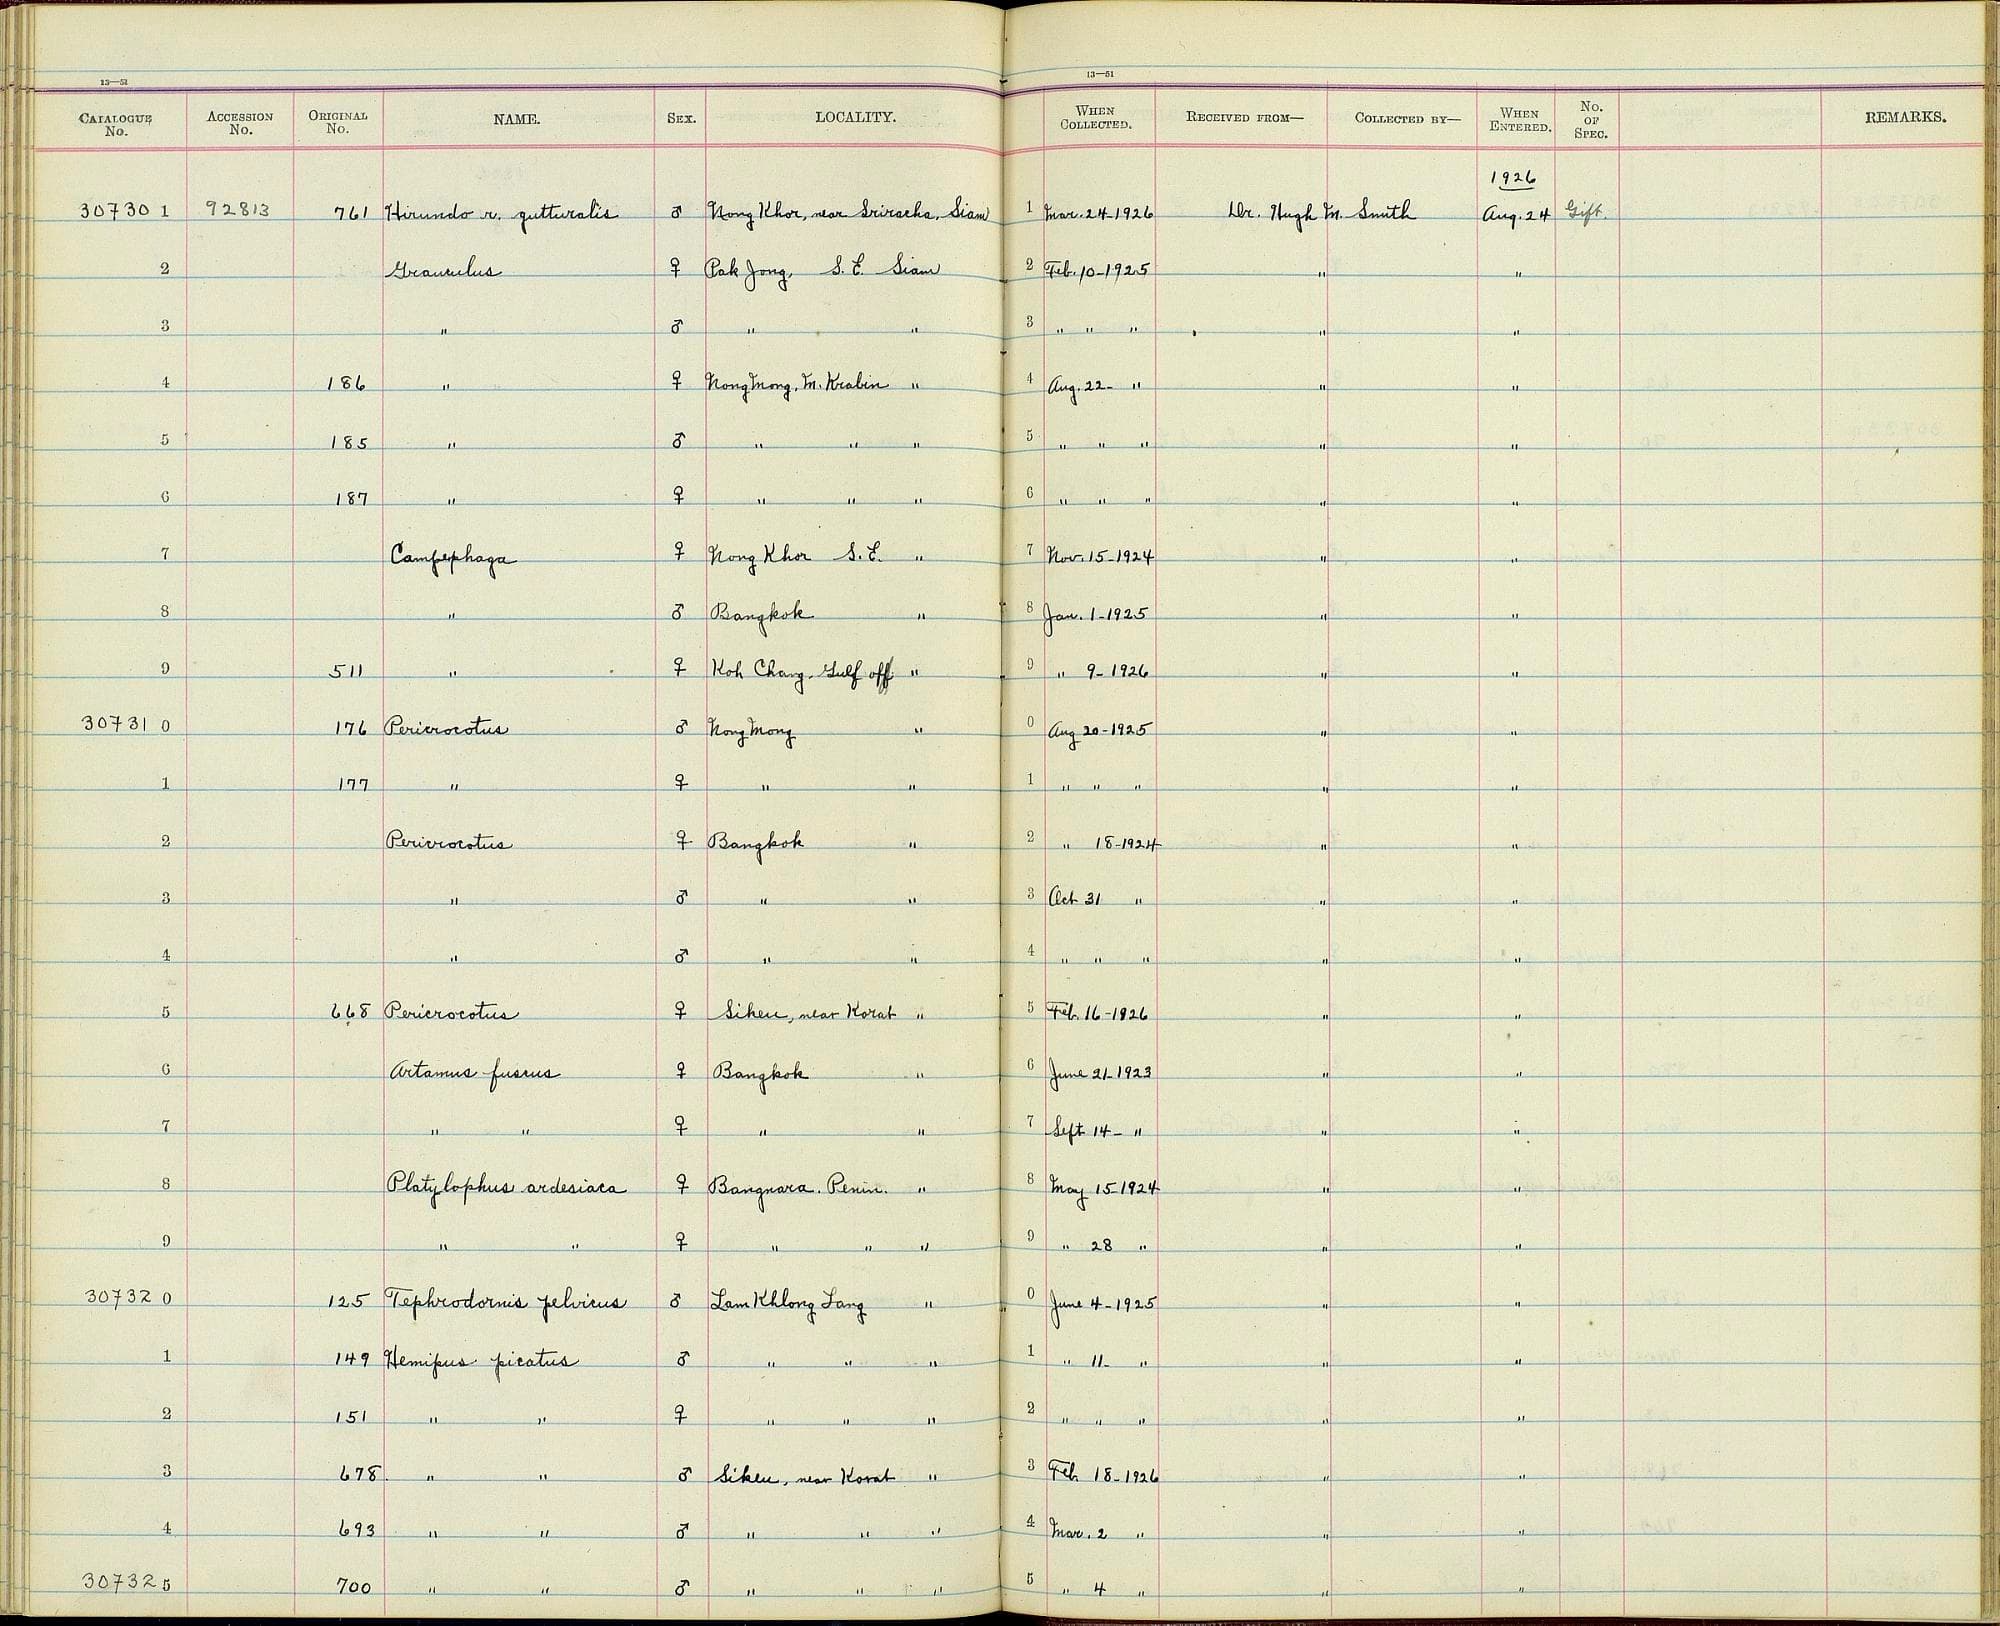 13—51 13—51
CATALOGUE No. ACCESSION No. ORIGINAL No. NAME. SEX. LOCALITY. WHEN COLLECTED. RECEIVED FROM— COLLECTED BY— WHEN ENTERED. No. OF SPEC. REMARKS.
1926
30730 1 92813 761 Hirundo r. gutturalis ♂ Nong Khor, near Sriracha, Siam 1 Mar. 24-1926 Dr. Hugh M. Smith Aug. 24 Gift.
2 Grauculus ♀ Pak Jong, S.E. Siam 2 Feb. 10-1925 " "
3 " ♂ " " 3 " " " " "
4 186 " ♀ Nong Mong, M. Krabin " 4 Aug. 22- " " "
5 185 " ♂ " " " 5 " " " " "
6 187 " ♀ " " " 6 " " " " "
7 Campephaga ♀ Nong Khor S.E. " 7 Nov. 15-1924 " "
8 " ♂ Bangkok " 8 Jan. 1-1925 " "
9 511 " ♀ Koh Chang, Gulf off " 9 " 9-1926 " "
30731 0 176 Pericrocotus ♂ Nong Mong " 0 Aug 20-1925 " "
1 177 " ♀ " " 1 " " " " "
2 Pericrocotus ♀ Bangkok " 2 " 18-1924 " "
3 " ♂ " " 3 Oct 31 " " "
4 " ♂ " " 4 " " " " "
5 668 Pericrocotus ♀ Sikeu, near Korat " 5 Feb. 16-1926 " "
6 Artamus fuscus ♀ Bangkok " 6 June 21-1923 " "
7 " " ♀ " " 7 Sept 14- " " "
8 Platylophus ardesiaca ♀ Bangnara. Penin. " 8 May 15-1924 " "
9 " " ♀ " " " 9 " 28 " " "
30732 0 125 Tephrodornis pelvicus ♂ Lam Khlong Lang " 0 June 4-1925 " "
1 149 Hemipus picatus ♂ " " " 1 " 11- " " "
2 151 " " ♀ " " " 2 " " " " "
3 678 " " ♂ Sikeu, near Korat " 3 Feb. 18-1926 " "
4 693 " " ♂ " " " 4 Mar. 2 " " "
30732 5 700 " " ♂ " " " 5 " 4 " " "